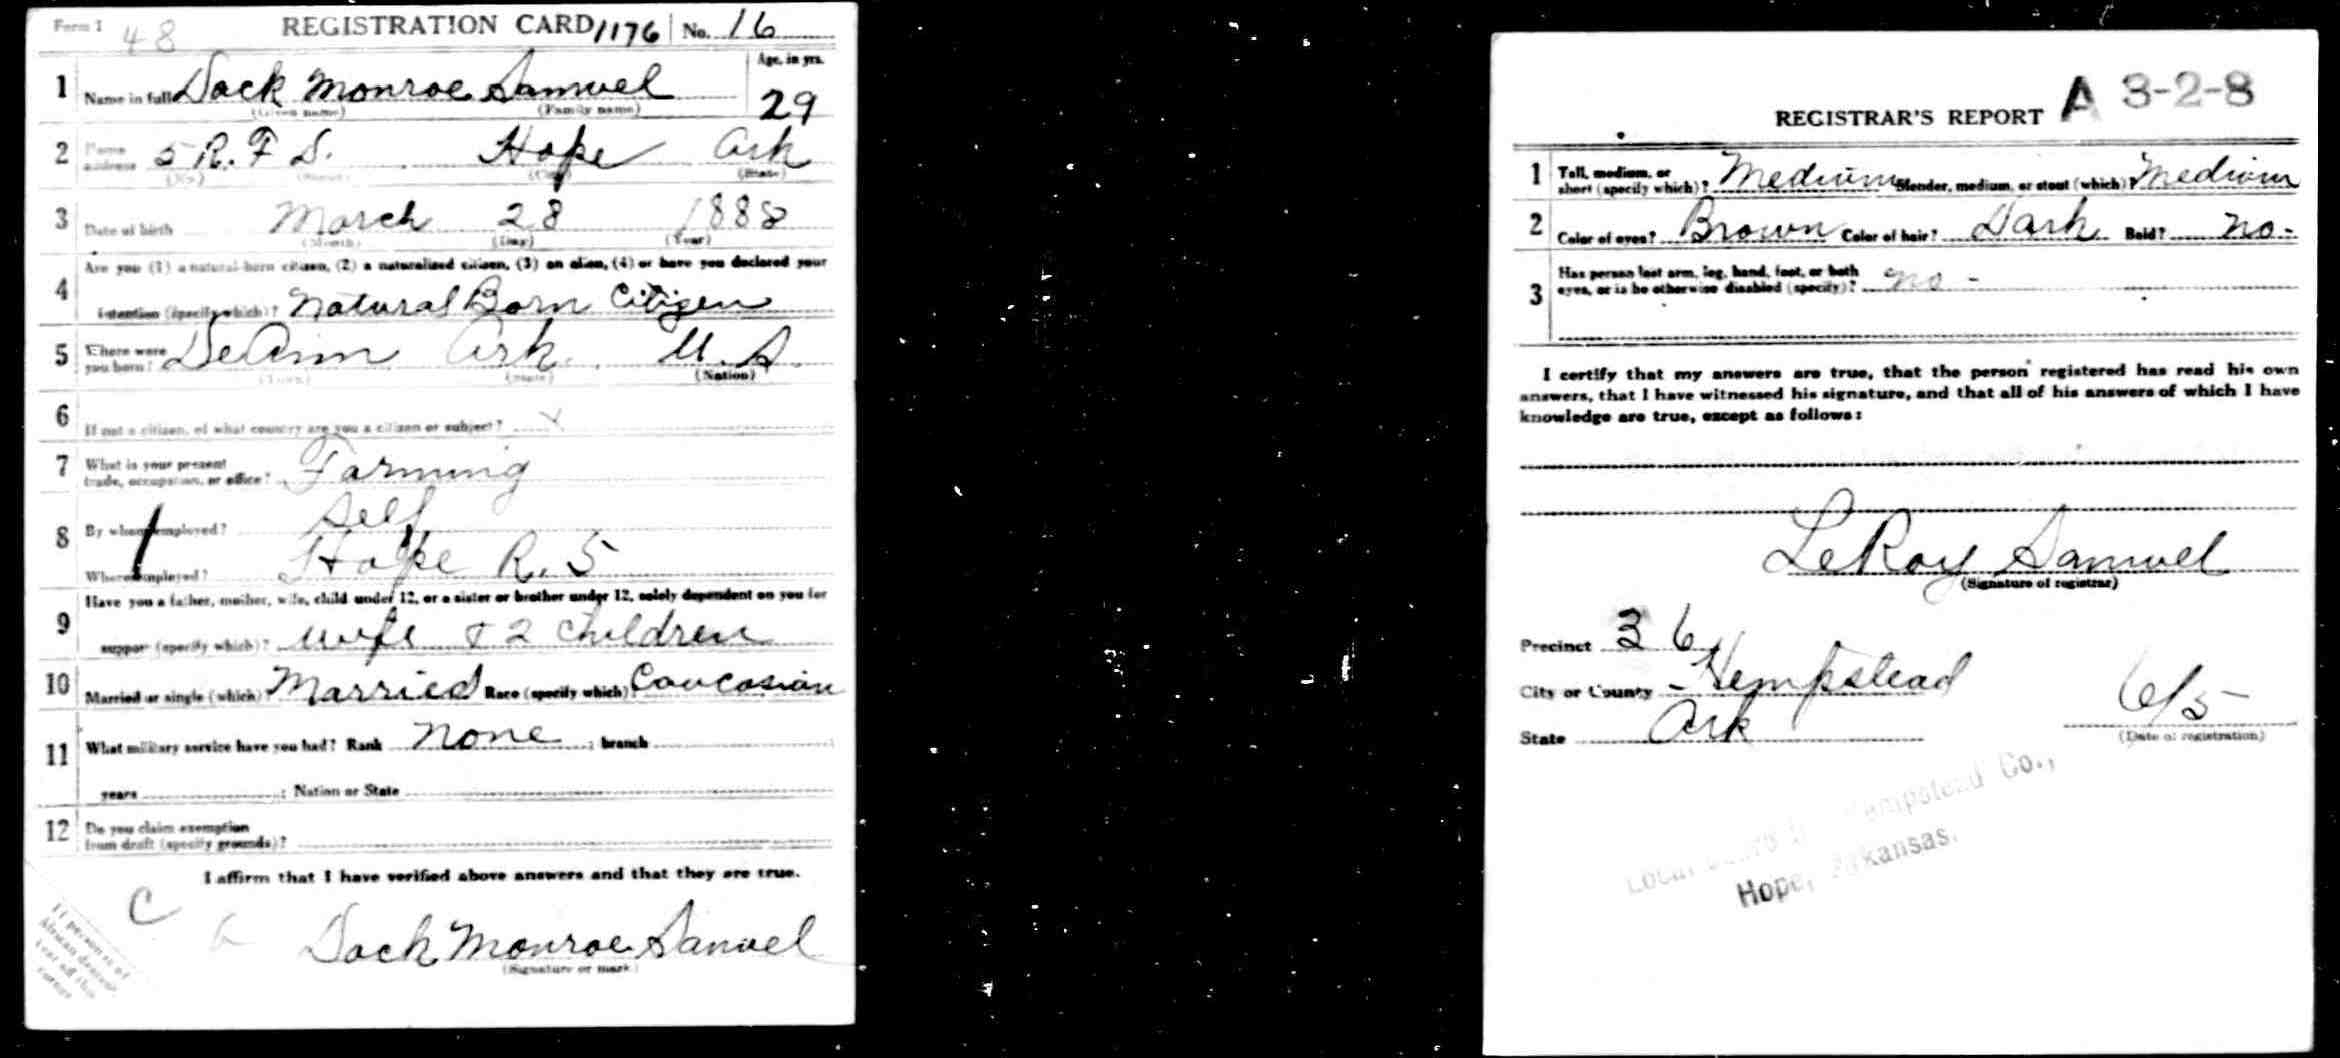 Form 1 48 REGISTRATION CARD 1176 No. 16
1 Name in full Dock Monroe Samuel Age, in yrs.
(Given name) (Family name) 29
2 Home address 5 R. F D. Hope Ark
(No.) (Street) (City) (State)
3 Date of birth March 28 1888
(Month) (Day) (Year)
4 Are you (1) a natural-born citizen, (2) a naturalized citizen, (3) an alien, (4) or have you declared your
intention (specify which)? Natural Born Citizen
5 Where were you born? DeAnn Ark. U. S
(Town) (State) (Nation)
6 If not a citizen, of what country are you a citizen or subject? x
7 What is your present
trade, occupation, or office? Farming
8 By whom employed? Self
Where employed? Hope R. 5
9 Have you a father, mother, wife, child under 12, or a sister or brother under 12, solely dependent on you for
support (specify which)? wife & 2 children
10 Married or single (which) Married Race (specify which) Caucasian
11 What military service have you had? Rank None ; branch
years ; Nation or State
12 Do you claim exemption
from draft (specify grounds)?
I affirm that I have verified above answers and that they are true.
C
Dock Monroe Samuel
(Signature or mark)
If person is of
African descent,
tear off this
corner
REGISTRAR'S REPORT A 3-2-8
1 Tall, medium, or
short (specify which)? Medium Slender, medium, or stout (which)? Medium
2 Color of eyes? Brown Color of hair? Dark Bald? no-
3 Has person lost arm, leg, hand, foot, or both
eyes, or is he otherwise disabled (specify)? no -
I certify that my answers are true, that the person registered has read his own
answers, that I have witnessed his signature, and that all of his answers of which I have
knowledge are true, except as follows:
LeRoy Samuel
(Signature of registrar)
Precinct 36
City or County - Hempstead
State Ark 6/5
(Date of registration)
Local Board Hempstead Co.,
Hope, Arkansas.